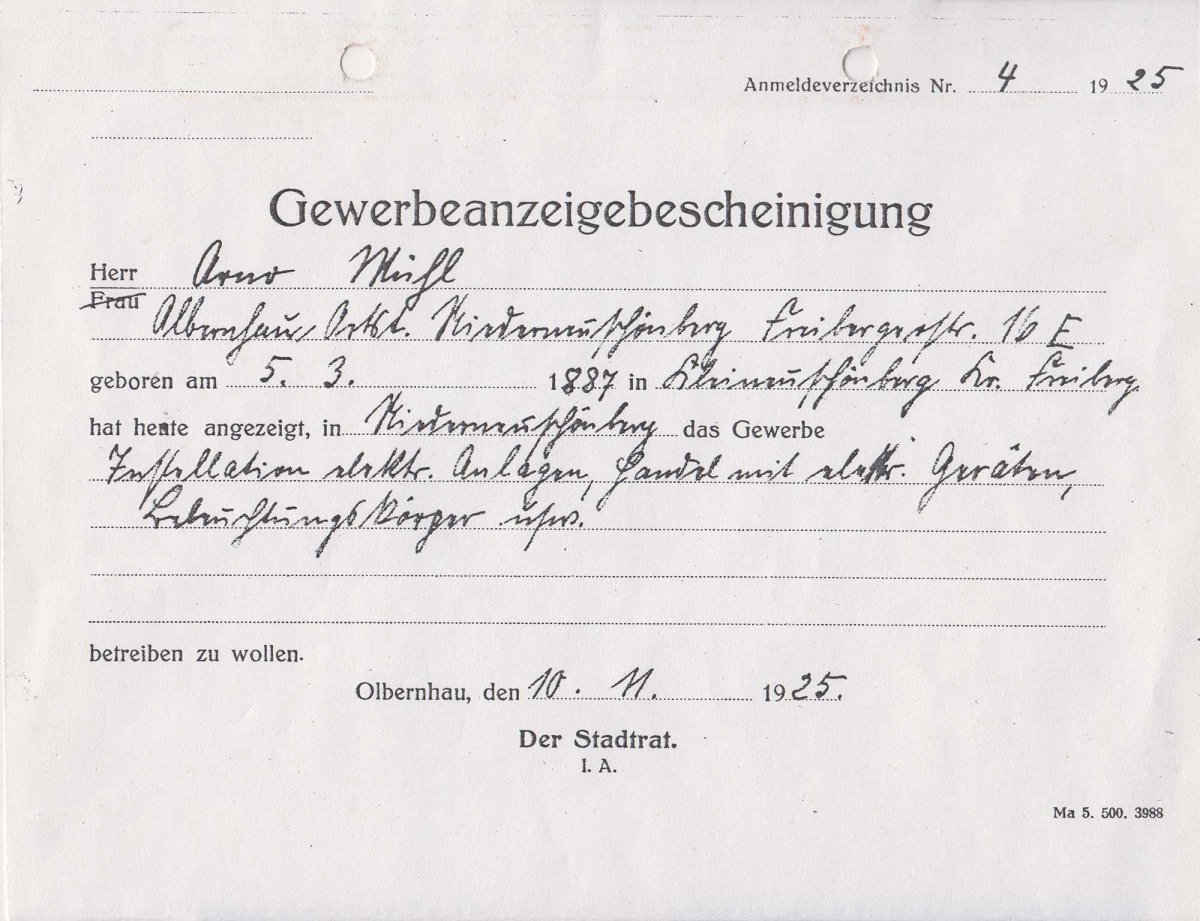 Anmeldeverzeichnis Nr. 4 1925
Gewerbeanzeigebescheinigung
Herr Arno Muhl
Frau
Olbernhau, Ortst. Niederneuschönberg Freibergerstr. 16 E
geboren am 5. 3. 1887 in Kleinneuschönberg Kr. Freiberg
hat heute angezeigt, in Niederneuschönberg das Gewerbe
Installation elektr. Anlagen, Handel mit elektr. Geräten,
Beleuchtungskörper usw.
betreiben zu wollen.
Olbernhau, den 10. 11. 1925.
Der Stadtrat.
I. A.
Ma 5. 500. 3988